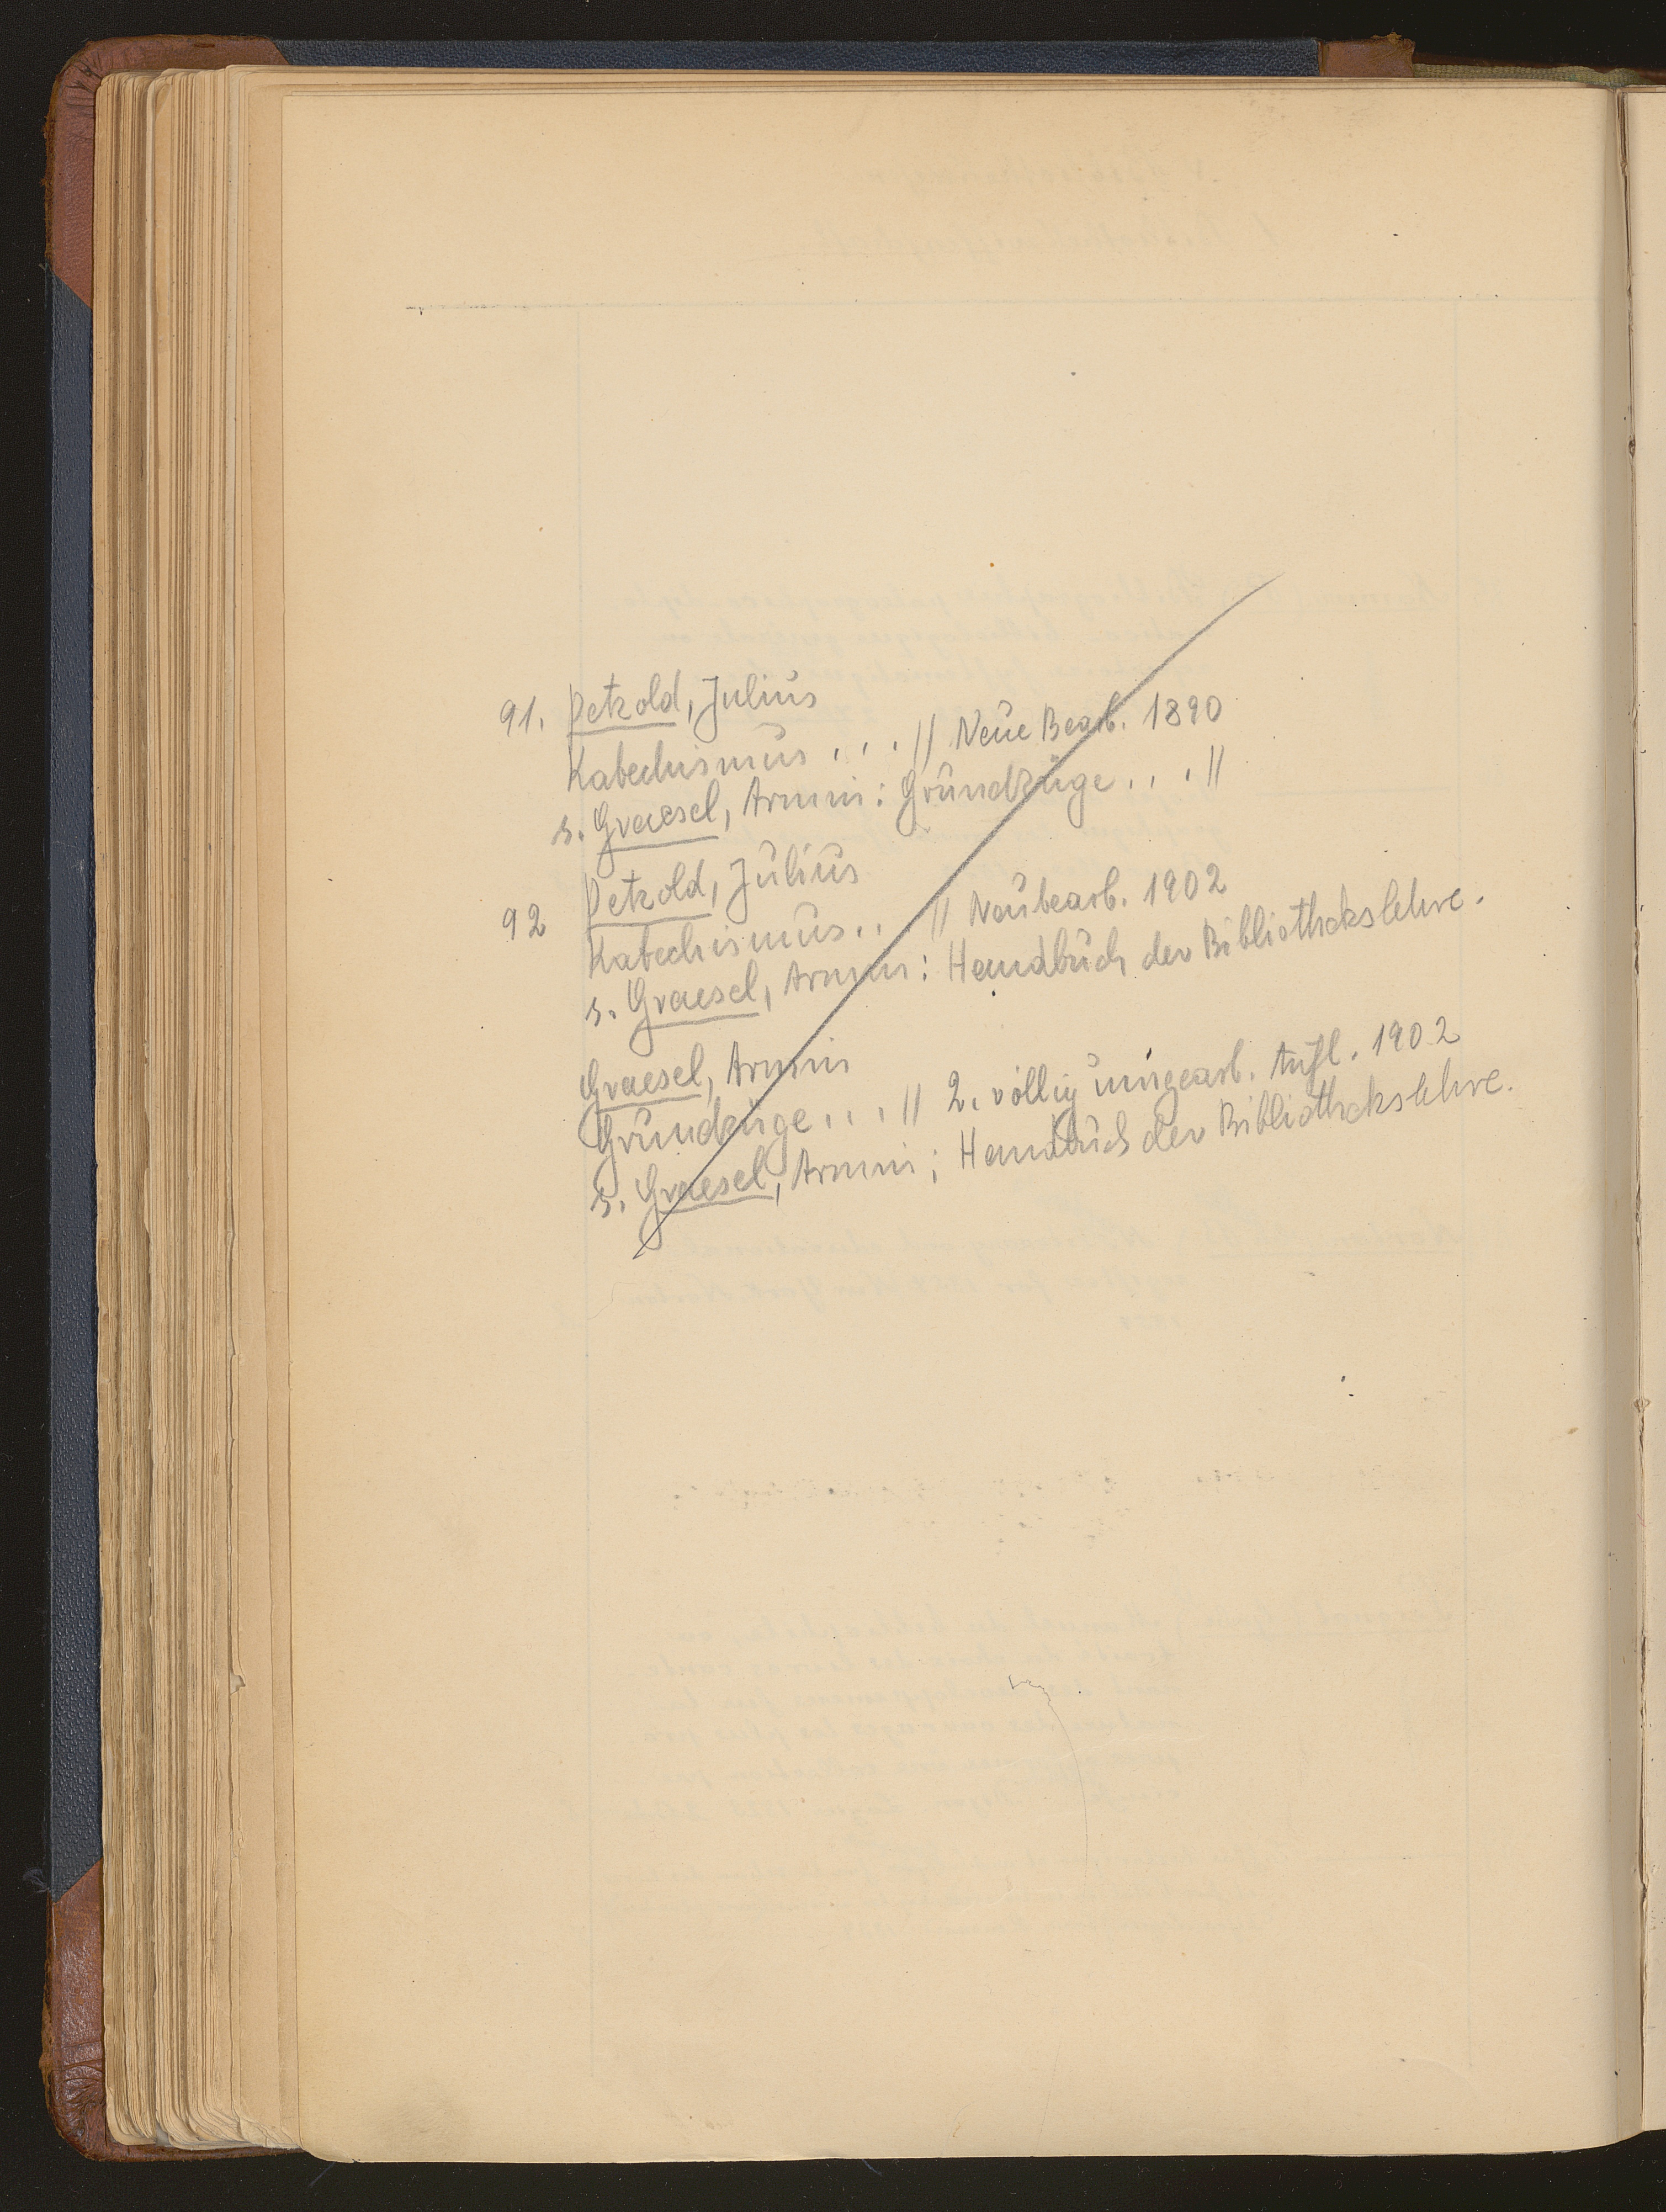 91. Petzold, Julius
Katechismus . . . // Neue Bearb. 1890
s. Graesel, Armin: Grundzüge . . . //
92 Petzold, Julius
Katechismus . . // Neubearb. 1902
s. Graesel, Armin: Handbuch der Bibliothekslehre.
Graesel, Armin
Grundzüge . . . // 2. völlig umgearb. Aufl. 1902
s. Graesel, Armin; Handbuch der Bibliothekslehre.